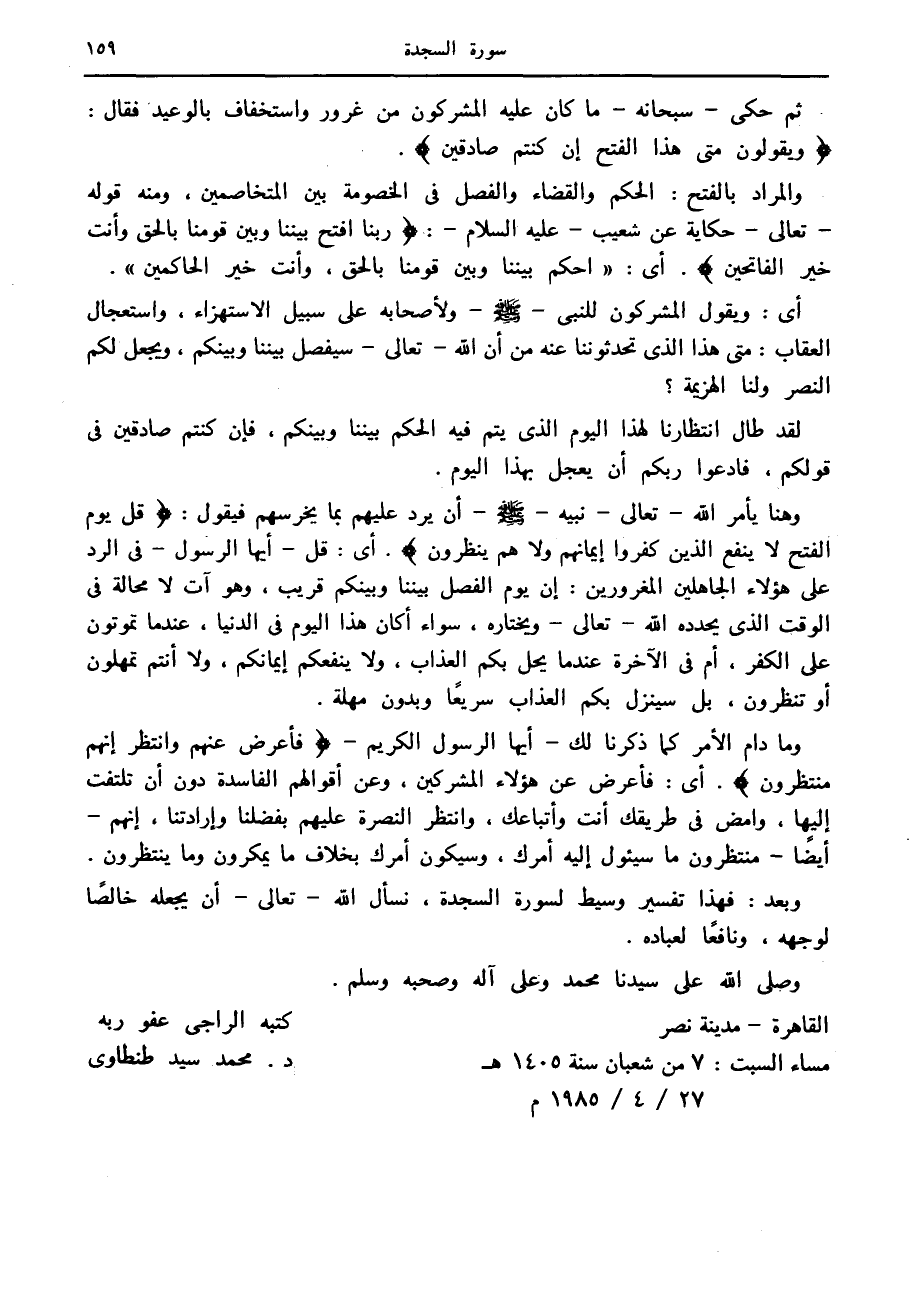 سورة السجدة ١٥٩
ثم حكى – سبحانه – ما كان عليه المشركون من غرور واستخفاف بالوعيد فقال :
﴿ ويقولون متى هذا الفتح إن كنتم صادقين ﴾ .
والمراد بالفتح : الحكم والقضاء والفصل فى الخصومة بين المتخاصمين ، ومنه قوله
– تعالى – حكاية عن شعيب – عليه السلام – : ﴿ ربنا افتح بيننا وبين قومنا بالحق وأنت
خير الفاتحين ﴾ . أى : « احكم بيننا وبين قومنا بالحق ، وأنت خير الحاكمين » .
أى : ويقول المشركون للنبى – ﷺ – ولأصحابه على سبيل الاستهزاء ، واستعجال
العقاب : متى هذا الذى تحدثوننا عنه من أن الله – تعالى – سيفصل بيننا وبينكم ، ويجعل لكم
النصر ولنا الهزيمة ؟
لقد طال انتظارنا لهذا اليوم الذى يتم فيه الحكم بيننا وبينكم ، فإن كنتم صادقين فى
قولكم ، فادعوا ربكم أن يعجل بهذا اليوم .
وهنا يأمر الله – تعالى – نبيه – ﷺ – أن يرد عليهم بما يخرسهم فيقول : ﴿ قل يوم
الفتح لا ينفع الذين كفروا إيمانهم ولا هم ينظرون ﴾ . أى : قل – أيها الرسول – فى الرد
على هؤلاء الجاهلين المغرورين : إن يوم الفصل بيننا وبينكم قريب ، وهو آت لا محالة فى
الوقت الذى يحدده الله – تعالى – ويختاره ، سواء أكان هذا اليوم فى الدنيا ، عندما تموتون
على الكفر ، أم فى الآخرة عندما يحل بكم العذاب ، ولا ينفعكم إيمانكم ، ولا أنتم تمهلون
أو تنظرون ، بل سينزل بكم العذاب سريعًا وبدون مهلة .
وما دام الأمر كما ذكرنا لك – أيها الرسول الكريم – ﴿ فأعرض عنهم وانتظر إنهم
منتظرون ﴾ . أى : فأعرض عن هؤلاء المشركين ، وعن أقوالهم الفاسدة دون أن تلتفت
إليها ، وامض فى طريقك أنت وأتباعك ، وانتظر النصرة عليهم بفضلنا وإرادتنا ، إنهم –
أيضًا – منتظرون ما سيئول إليه أمرك ، وسيكون أمرك بخلاف ما يمكرون وما ينتظرون .
وبعد : فهذا تفسير وسيط لسورة السجدة ، نسأل الله – تعالى – أن يجعله خالصًا
لوجهه ، ونافعًا لعباده .
وصلى الله على سيدنا محمد وعلى آله وصحبه وسلم .
القاهرة – مدينة نصر كتبه الراجى عفو ربه
مساء السبت : ٧ من شعبان سنة ١٤٠٥ هـ د . محمد سيد طنطاوى
٢٧ / ٤ / ١٩٨٥ م